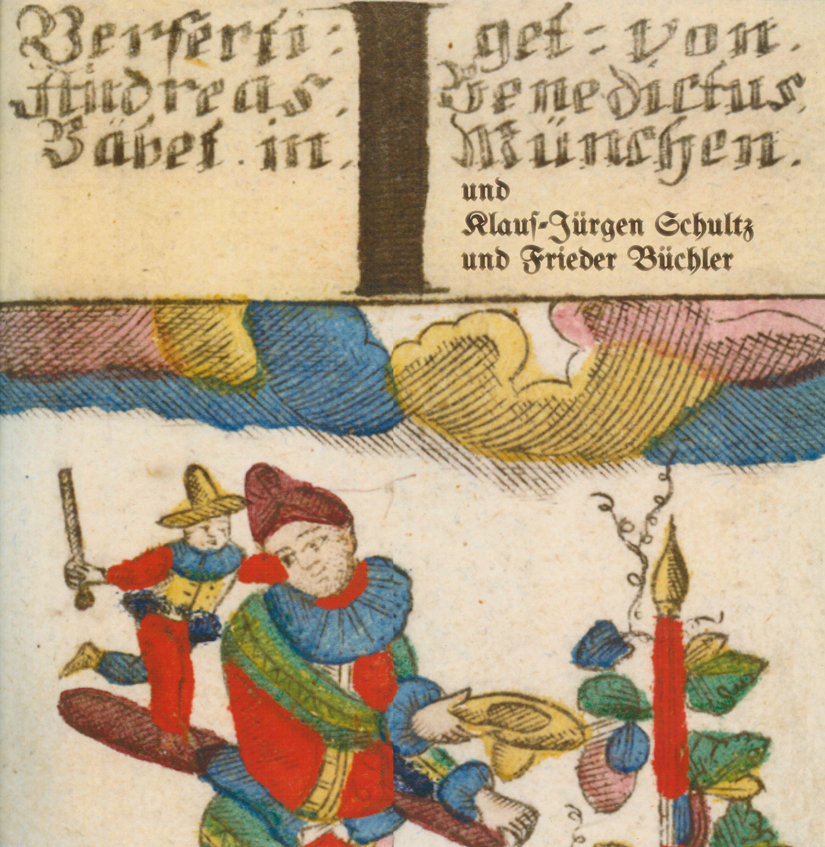 Verferti: get: von.
Andreas. Benedictus
Bäbel. in. München.
und
Klaus-Jürgen Schultz
und Frieder Büchler